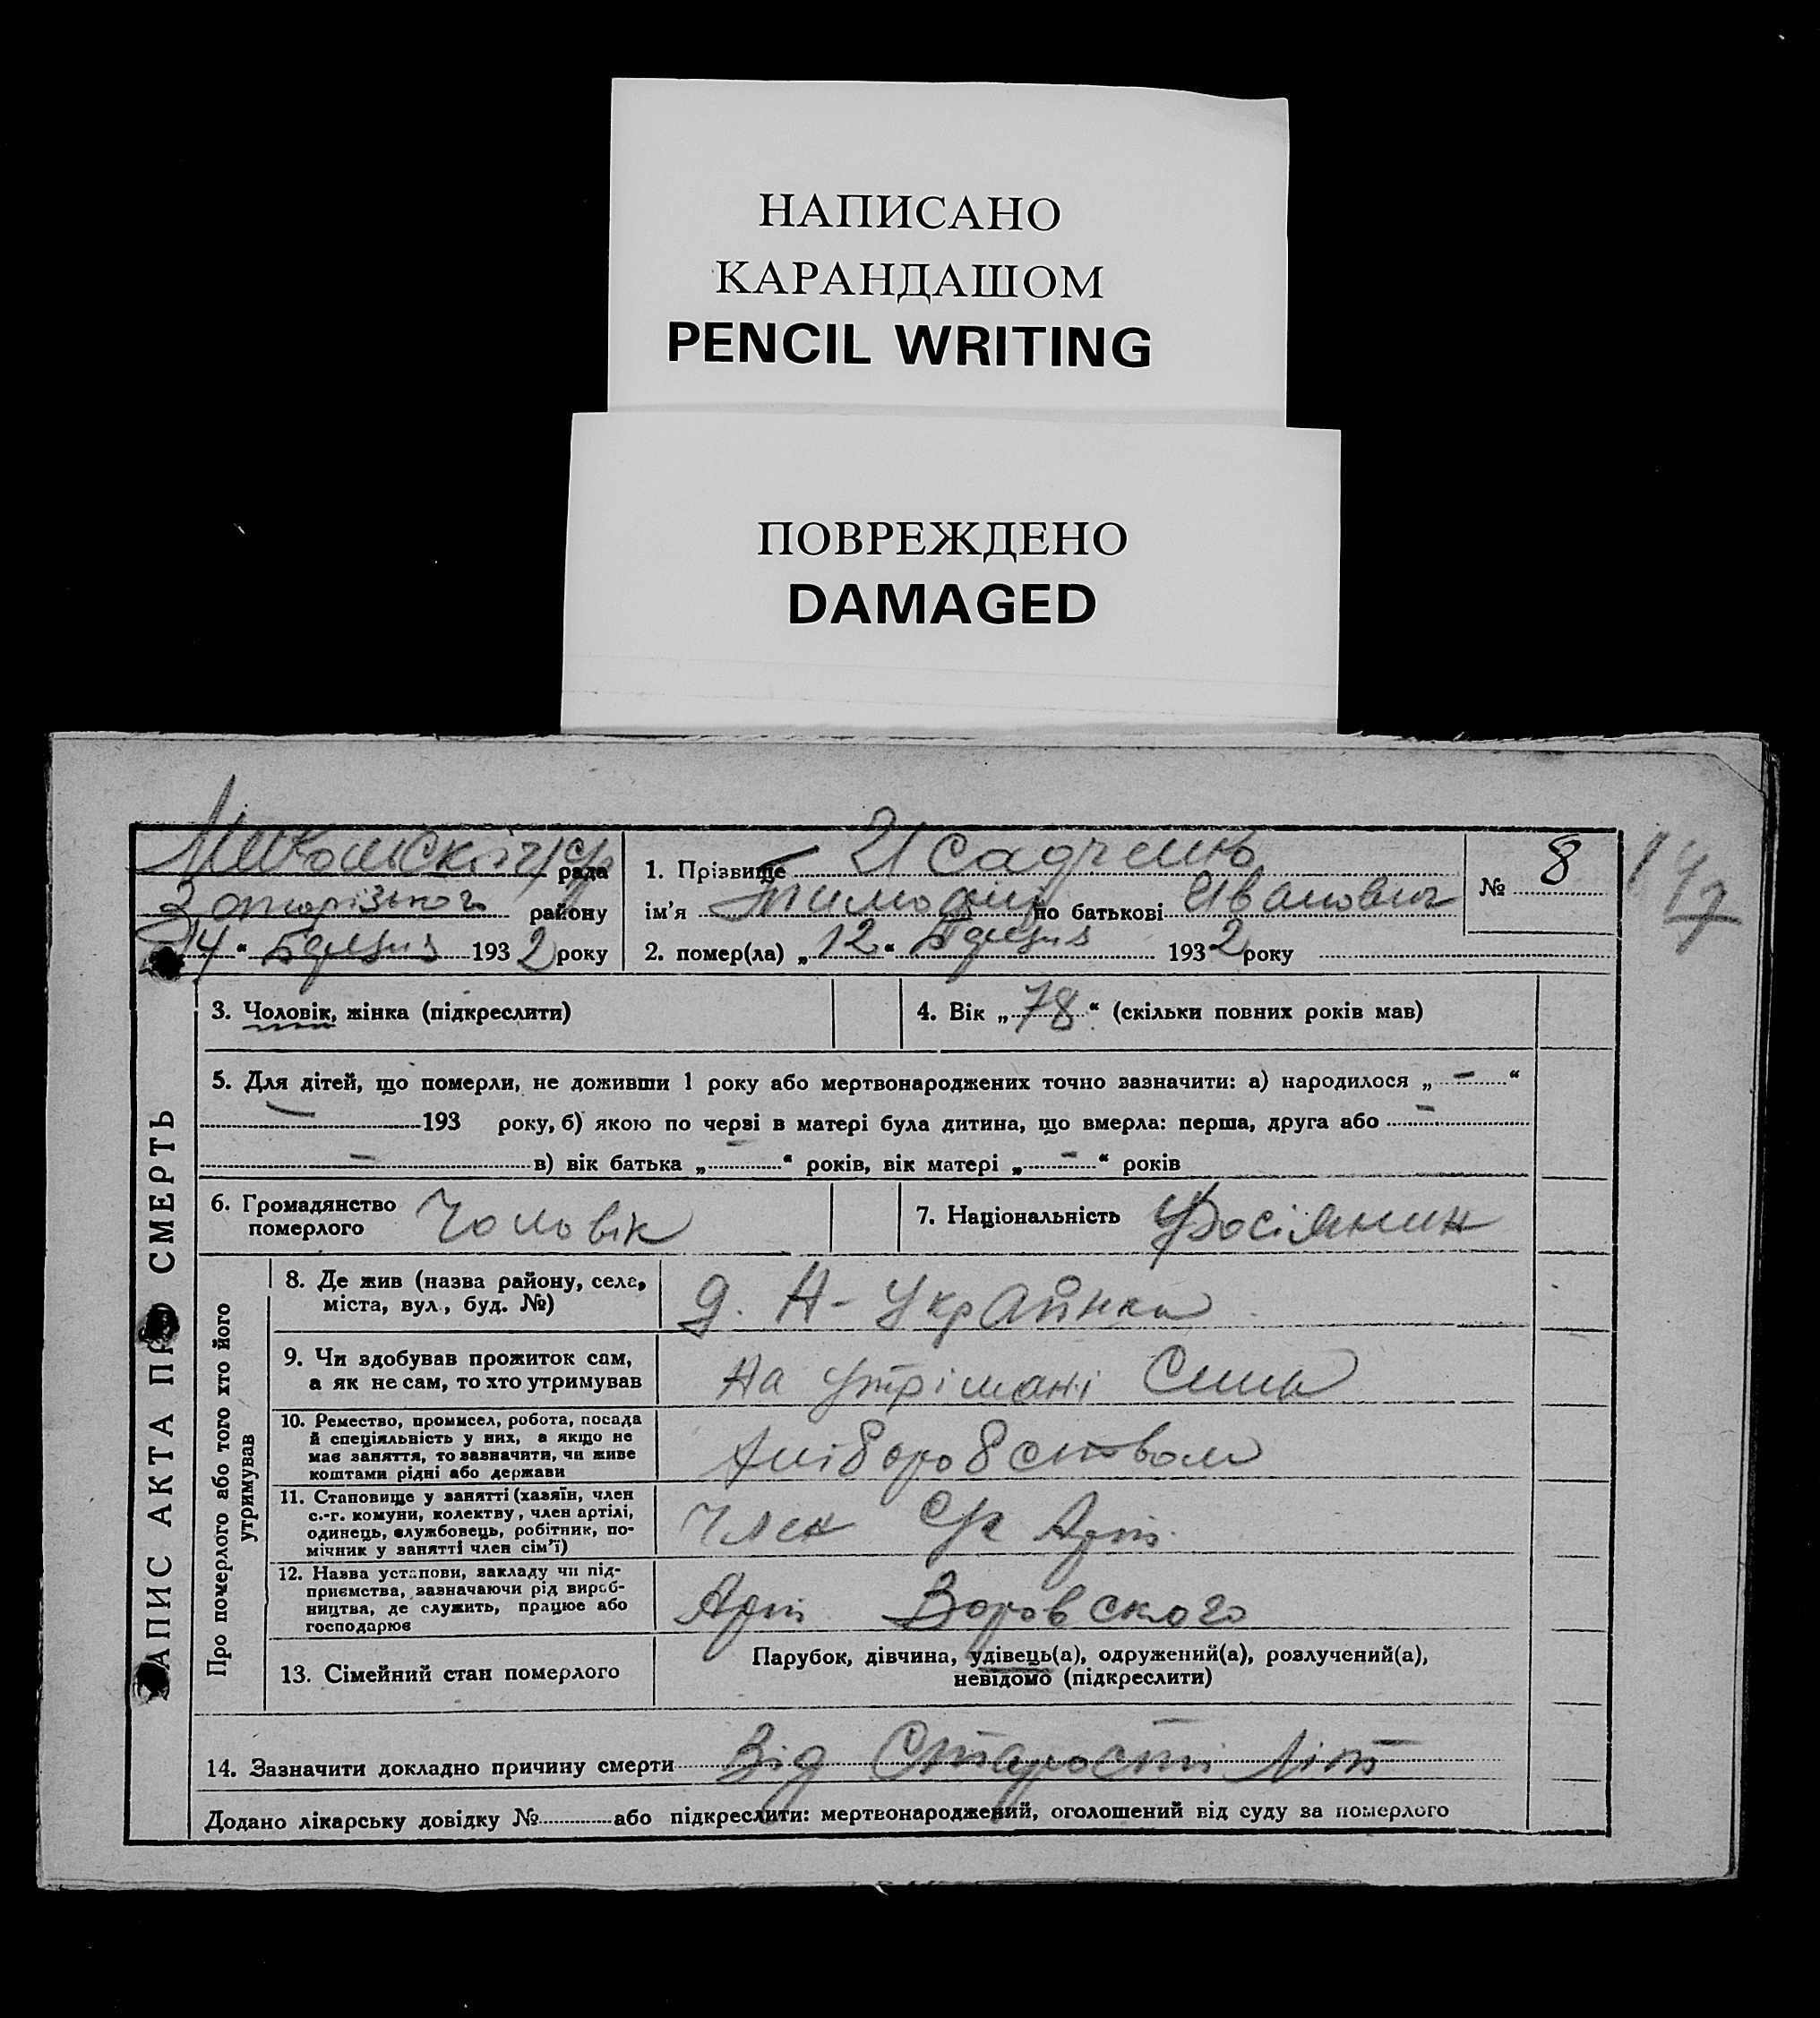 НАПИСАНО
КАРАНДАШОМ
PENCIL WRITING
ПОВРЕЖДЕНО
DAMAGED
рада
району
14 “ 1932 року
1. Прізвище
ім’я по батькові Иванович
2. помер(ла) „ 12 “ 1932 року
№ 8
147
ЗАПИС АКТА ПРО СМЕРТЬ
3. Чоловік, жінка (підкреслити)
4. Вік „ 78 “ (скільки повних років мав)
5. Для дітей, що померли, не доживши 1 року або мертвонароджених точно зазначити: а) народилося „ – “
– 193 року, б) якою по черві в матері була дитина, що вмерла: перша, друга або –
– в) вік батька „ – “ років, вік матері „ – “ років
6. Громадянство
померлого
Чоловік
7. Національність
Росіянин
Про померлого або того хто його
утримував
8. Де жив (назва району, села,
міста, вул., буд. №)
д. Н-Українка
9. Чи здобував прожиток сам,
а як не сам, то хто утримував
На утрімані Сина
10. Ремество, промисел, робота, посада
й спеціяльність у них, а якщо не
має заняття, то зазначити, чи живе
коштами рідні або держави
11. Становище у занятті (хазяїн, член
с.-г. комуни, колектву, член артілі,
одинець, службовець, робітник, по-
мічник у занятті член сім’ї)
Член С/г Арт.
12. Назва установи, закладу чи під-
приємства, зазначаючи рід вироб-
ництва, де служить, працює або
господарює
Арт. Воровского
13. Сімейний стан померлого
Парубок, дівчина, удівець(а), одружений(а), розлучений(а),
невідомо (підкреслити)
14. Зазначити докладно причину смерти Від Старості літ
Додано лікарську довідку № або підкреслити: мертвонароджений, оголошений від суду за померлого